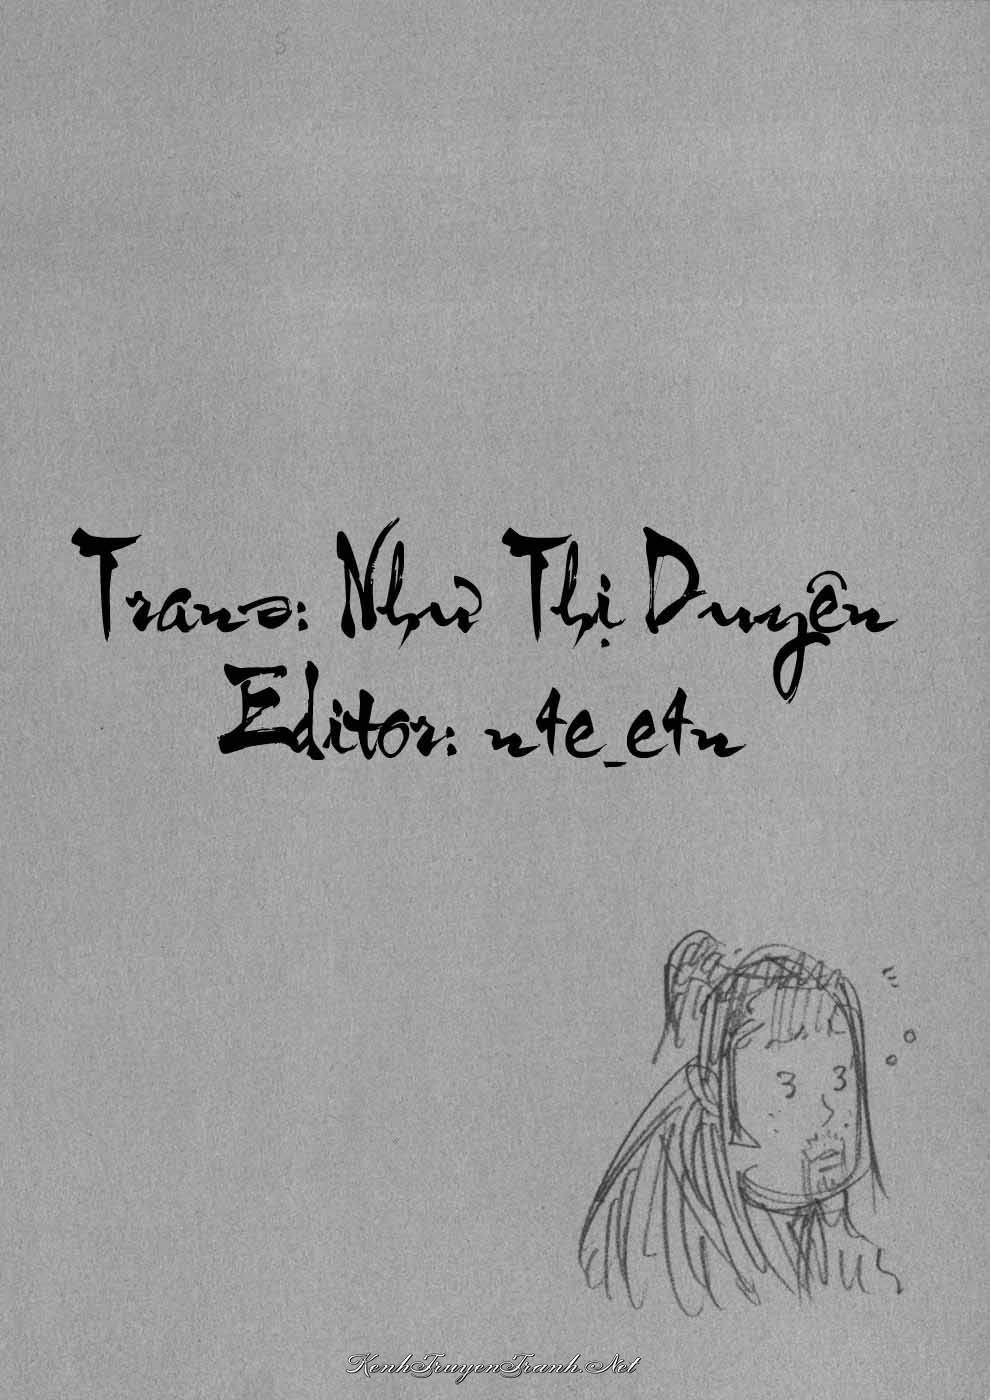 Trans: Như Thị Duyên
Editor: n4e_e4n
3 3
KenhTruyenTranh.Net